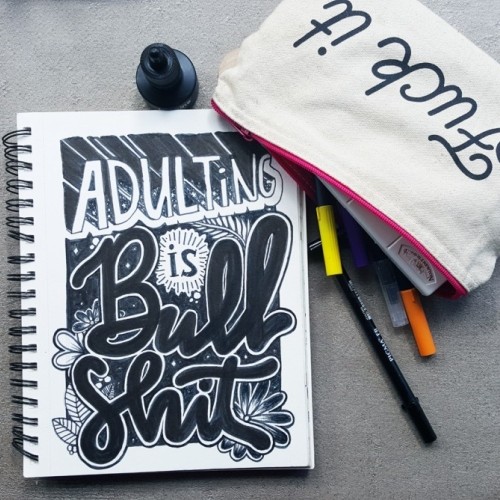 Fuck it
ADULTiNG
is
Bull
Shit